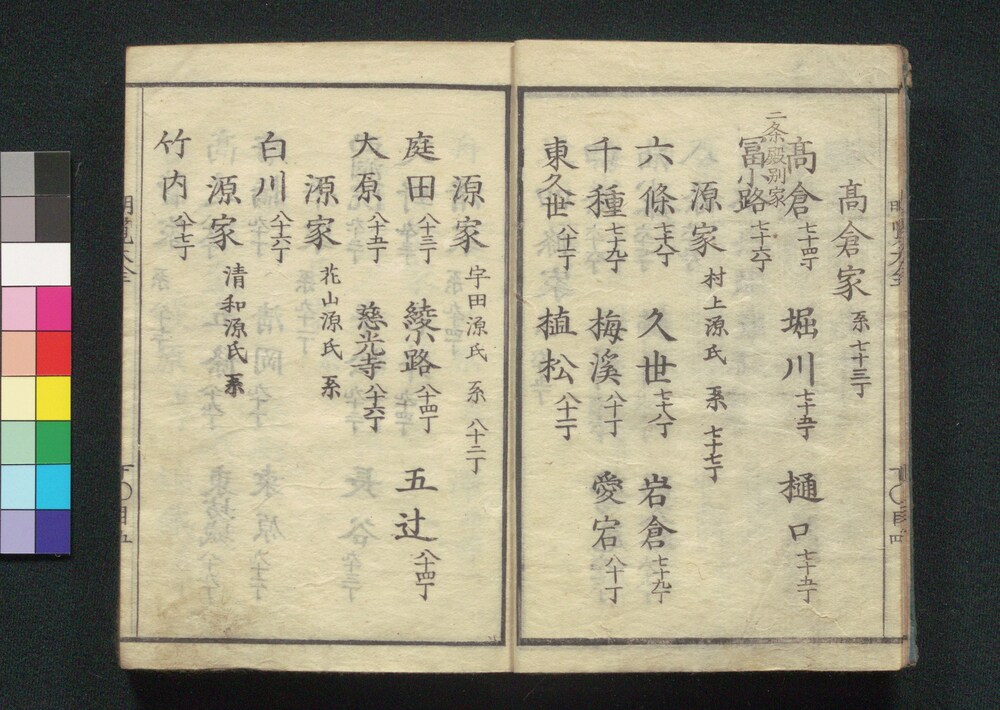 髙倉家 系七十三丁
髙倉 七十四丁 堀川 七十五丁 樋口 七十五丁
二条殿別家
冨小路 七十六丁
源家 村上源氏 系 七十七丁
六條 七十八丁 久世 七十八丁 岩倉 七十九丁
千種 七十九丁 梅溪 八十丁 愛宕 八十丁
東久世 八十一丁 植松 八十一丁
源家 宇田源氏 系 八十二丁
庭田 八十三丁 綾小路 八十四丁 五辻 八十四丁
大原 八十五丁 慈光寺 八十六丁
源家 花山源氏 系
白川 八十六丁
源家 清和源氏 系
竹内 八十七丁